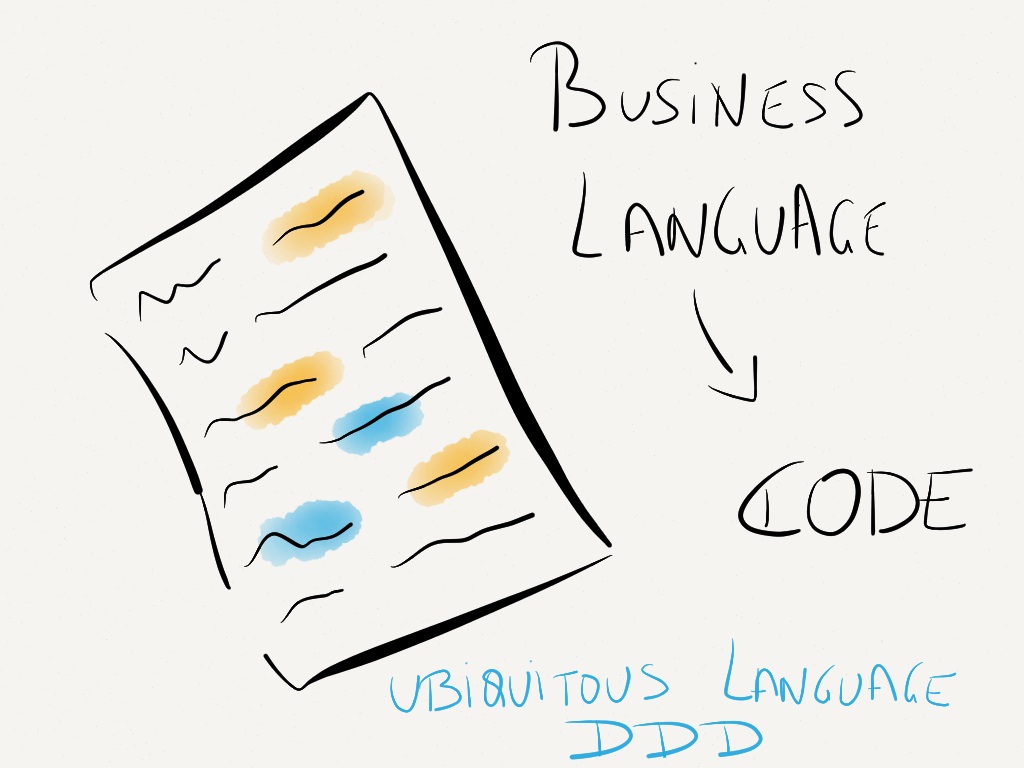 BUSINESS
LANGUAGE
CODE
UBIQUITOUS LANGUAGE
DDD